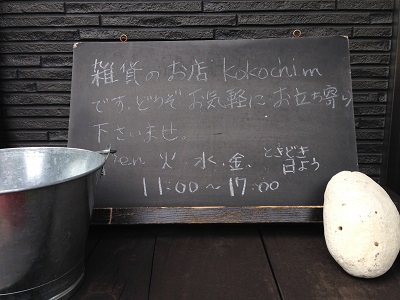 雑貨のお店 kokochim
です。どうぞお気軽にお立ち寄り
下さいませ。
open 火・水・金、ときどき
日よう
11:00〜17:00